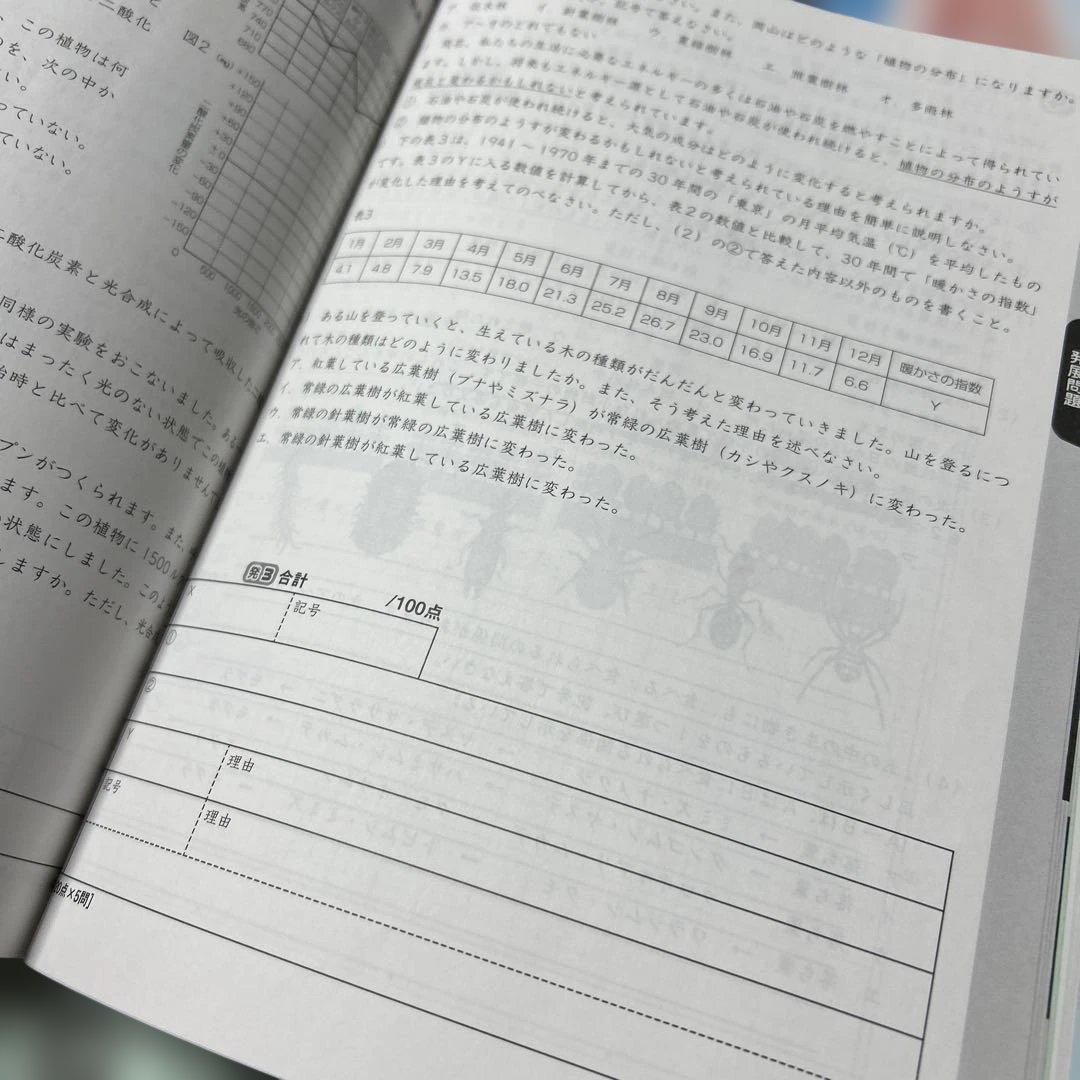 二酸化
図2
この植物は何
つを、次の中か
さい。
っていない。
ていない。
770
740
710
680
(mg)
+150
+120
+90
+60
+30
±0
-30
-60
-90
-120
-150
0
500
1000
二酸化炭素と光合成によって吸収した二
同様の実験をおこないました。ある
はまったく光のない状態でこの植
始時と比べて変化がありませんで
プンがつくられます。また、
ます。この植物に1500ル
い状態にしました。このよ
しますか。ただし、光合成
さい。また、岡山はどのような「植物の分布」になりますか。
記号で答えなさい。
イ．針葉樹林
ウ．夏緑樹林
エ．照葉樹林
オ．多雨林
データのどれでもない
現在、私たちの生活に必要なエネルギーの多くは石油や石炭を燃やすことによって得られてい
ます。しかし、将来もエネルギー源として石油や石炭が使われ続けると、植物の分布のようすが
現在と変わるかもしれないと考えられています。
① 石油や石炭が使われ続けると、大気の成分はどのように変化すると考えられますか。
② 植物の分布のようすが変わるかもしれないと考えられている理由を簡単に説明しなさい。
下の表3は、1941～1970年までの30年間の「東京」の月平均気温（℃）を平均したもの
です。表3のYに入る数値を計算してから、表2の数値と比較して、30年間で「暖かさの指数」
が変化した理由を考えてのべなさい。ただし、(2)の②で答えた内容以外のものを書くこと。
表3
1月 2月 3月 4月 5月 6月 7月 8月 9月 10月 11月 12月 暖かさの指数
4.1 4.8 7.9 13.5 18.0 21.3 25.2 26.7 23.0 16.9 11.7 6.6 Y
ある山を登っていくと、生えている木の種類がだんだんと変わっていきました。山を登るにつ
れて木の種類はどのように変わりましたか。また、そう考えた理由を述べなさい。
ア．紅葉している広葉樹（ブナやミズナラ）が常緑の広葉樹（カシやクスノキ）に変わった。
イ．常緑の広葉樹が紅葉している広葉樹に変わった。
ウ．常緑の針葉樹が常緑の広葉樹に変わった。
エ．常緑の針葉樹が紅葉している広葉樹に変わった。
発展問題
発3 合計 /100点
X
記号
①
②
Y
理由
記号
理由
0点×5問]